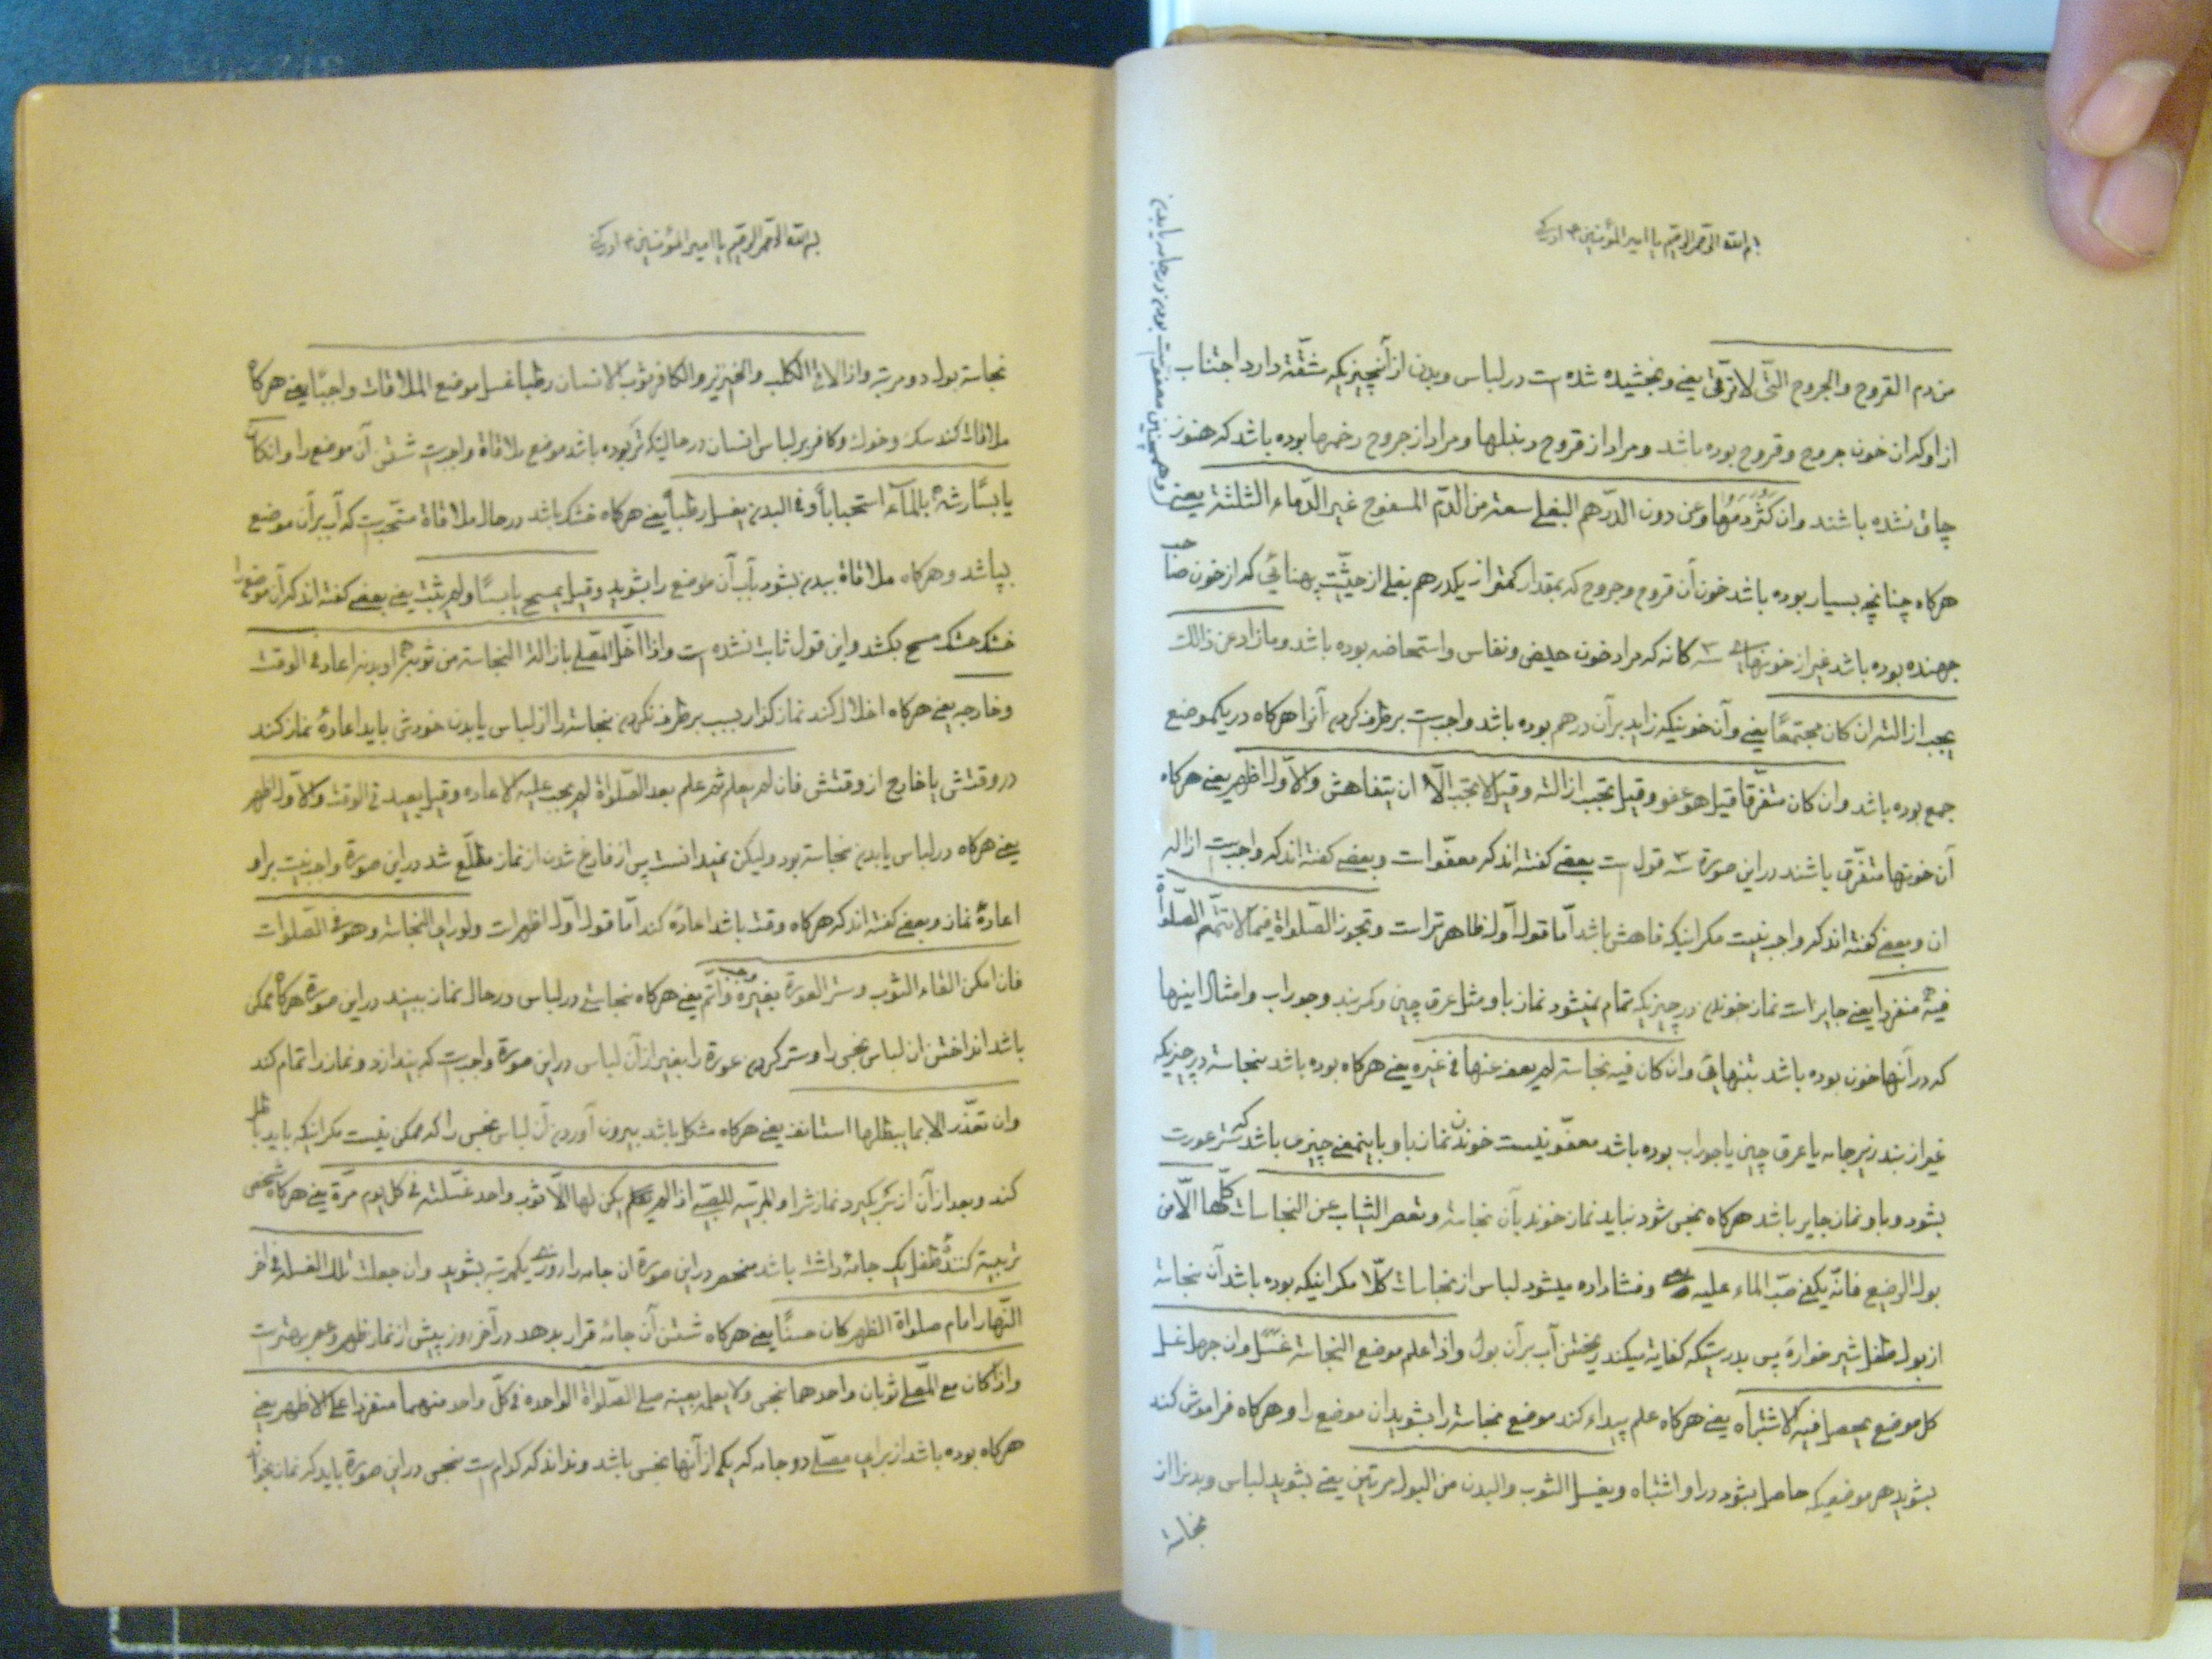 بسم الله الرحمن الرحیم یا امیر المؤمنین ادرکنی
من دم القروح والجروح التی لا ترقی یعنی و بخشیده شده است در لباس و بدن از آنچیزیکه مشقّة دارد اجتناب
از او کردن خون جروح و قروح بوده باشد و مراد از قروح دنبلها و مراد از جروح زخمها بوده باشد که هنوز
چاق نشده باشند وان کثر دمها وعن دون الدّرهم البغلی سعة من الدّم المسفوح غیر الدّماء الثلثة یعنی
و همچنین معفو است بودن در جامه یا بدن
هرکاه چنانچه بسیار بوده باشد خون آن قروح و جروح که بمقدار کمتر از یکدرهم بغلی از حیثیت پهنائی که از خون صاحب
جهنده بوده باشد غیر از خونهای سه کانه که مراد خون حیض و نفاس و استحاضه بوده باشد وما زاد عن ذالک
یجب ازالته ان کان مجتمعًا یعنی و آن خونیکه زاید بر آن درهم بوده باشد واجبست برطرف کردن آنرا هرکاه در یکموضع
جمع بوده باشد وان کان متفرّقا قیل هو عفو وقیل یجب ازالته وقیل لا یجب الّا ان یتفاهش والاوّل اظهر یعنی هرکاه
آن خونها متفرّق باشند در این صورة سه قول است بعضی کفته اند که معفوّات و بعضی کفته اند که واجبست ازاله
ان و بعضی کفته اند که واجب نیست مکر اینکه فاهش باشد امّا قول اوّل ظاهرتر است وتجوز الصّلواة فیما لا تتمّ الصلواة
فیه منفردا یعنی جایز است نماز خوندن در چیزیکه تمام نمیشود نماز باو مثل عرق چین و کمربند و جوراب و امثال اینها
که در آنها خون بوده باشد بتنهائی وان کان فیه نجاسة لم یعف عنها فی غیره یعنی هرکاه بوده باشد نجاسة در چیزیکه
غیر از بند زیر جامه یا عرق چین یا جوراب بوده باشد معفوّ نیست خوندن نماز باو باینمعنی چیزی باشد که ستر عورت
بشود و باو نماز جایز باشد هرکاه نجس شود نباید نماز خوند بآن نجاسة وتعصر الثیاب عن النجاسات کلّها الّا من
بول الرضیع فانّه یکفی صبّ الماء علیه یعنی و فشار داده میشود لباس از نجاسات کلّا مکر اینکه بوده باشد آن نجاسة
از بول طفل شیر خواره پس بدرستیکه کفایة میکند ریختن آب بر آن بول واذا علم موضع النجاسة غسل وان جهل غسل
کل موضع یحصل فیه الاشتباه یعنی هرکاه علم پیداء کند موضع نجاسة را بشوید ان موضع را و هرکاه فراموش کند
بشوید هر موضعیکه حاصل بشود در او اشتباه ویغسل الثوب والبدن من البول مرتین یعنی بشوید لباس و بدنرا از
نجاسة
بسم الله الرحمن الرحیم یا امیر المؤمنین ادرکنی
نجاسة بول دو مرتبه واذا لاقی الکلب والخنزیر والکافر ثوب الانسان رطبا غسل موضع الملاقات واجبًا یعنی هرکاه
ملاقات کند سک و خوک و کافر بر لباس انسان در حالتیکه تر بوده باشد موضع ملاقاة واجبست شستن آن موضع را وان کان
یابسًا رشه بالمآء استحباباً وفی البدن یغسل رطباً یعنی هرکاه خشک باشد در حال ملاقاة مستحبست که آب بر آن موضع
بپاشد و هرکاه ملاقاة ببدن بشود بآب آن موضع را بشوید وقیل یمسح یابسًا ولم یثبت یعنی بعضی کفته اند که آن موضع را
خشک خشک مسح بکشد و این قول ثابت نشده است واذا اخلّ المصّلی بازالة النجاسة من ثوبه او بدنه اعاد فی الوقت
وخارجه یعنی هرکاه اخلال کند نمازکذار بسبب برطرف نکردن نجاسة را از لباس یا بدن خودش باید اعادهٔ نماز کند
در وقتش یا خارج از وقتش فان لم یعلم ثم علم بعد الصّلواة لم یجب علیه الاعاده وقیل یعید فی الوقت والاوّل اظهر
یعنی هرکاه در لباس یا بدن نجاسة بود ولیکن نمیدانست پس از فارغ شدن از نماز مطّلع شد در این صورة واجب نیست بر او
اعادهٔ نماز و بعضی کفته اند که هرکاه وقت باشد اعاده کند امّا قول اوّل اظهر است ولو رای النجاسة وهو فی الصّلوات
فان امکن القاء الثوب وستر العورة بغیره وجب واتمّ یعنی هرکاه نجاستی در لباس در حال نماز ببیند در این صورة هرکاه ممکن
باشد انداختن ان لباس نجس را و ستر کردن عورة را بغیر از آن لباس در این صورة واجبست که بیندازد و نماز را تمام کند
وان تعذّر الا بما یبطلها استانف یعنی هرکاه مشکل باشد بیرون آوردن آن لباس نجس را که ممکن نیست مکر اینکه باید باطل
کند و بعد از آن از سر بکیرد نمازش را والمربّیه للصبّی اذا لم یکن لها الّا ثوب واحد غسّلته فی کل یوم مرّة یعنی هرکاه شخص
تربیة کنندهٔ طفل یک جامهٔ داشته باشد منحصر در این صورة ان جامه را روزی یکمرتبه بشوید وان جعلت تلک الغسلة فی اخر
النّهار امام صلواة الظهر کان حسنًا یعنی هرکاه شستن آن جامه قرار بدهد در آخر روز پیش از نماز ظهر و عصر بهتر است
واذا کان مع المصّلی ثوبان واحدهما نجس ولا یعلمه بعینه صلی الصّلواة الواحدة فی کلّ واحد منهما منفردا علی الاظهر یعنی
هرکاه بوده باشد از برای مصّلی دو جامه که یکی از آنها نجس باشد و نداند که کدام است نجس در این صورة باید که نماز بخواند